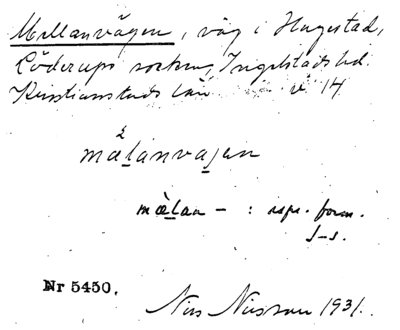 Mellanvägen, väg i Hagestad,
Löderups socken, Ingelstads hd.
Kristianstads län 14
2
mælanvagen
mælan - : rspr. form.
s-s.
Nr 5450.
Nils Nilsson 1931.